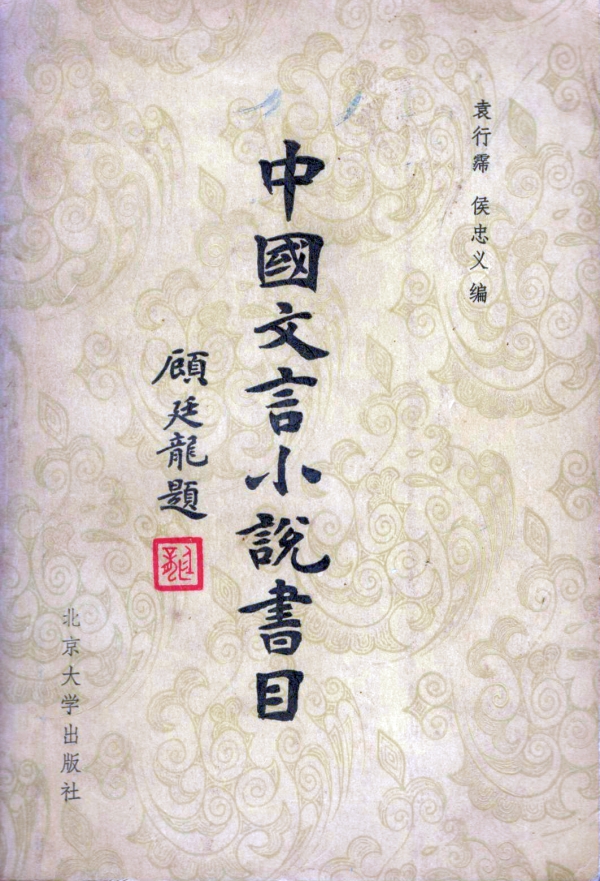 袁行霈 侯忠义 编
中國文言小說書目
顧廷龍題
北京大学出版社